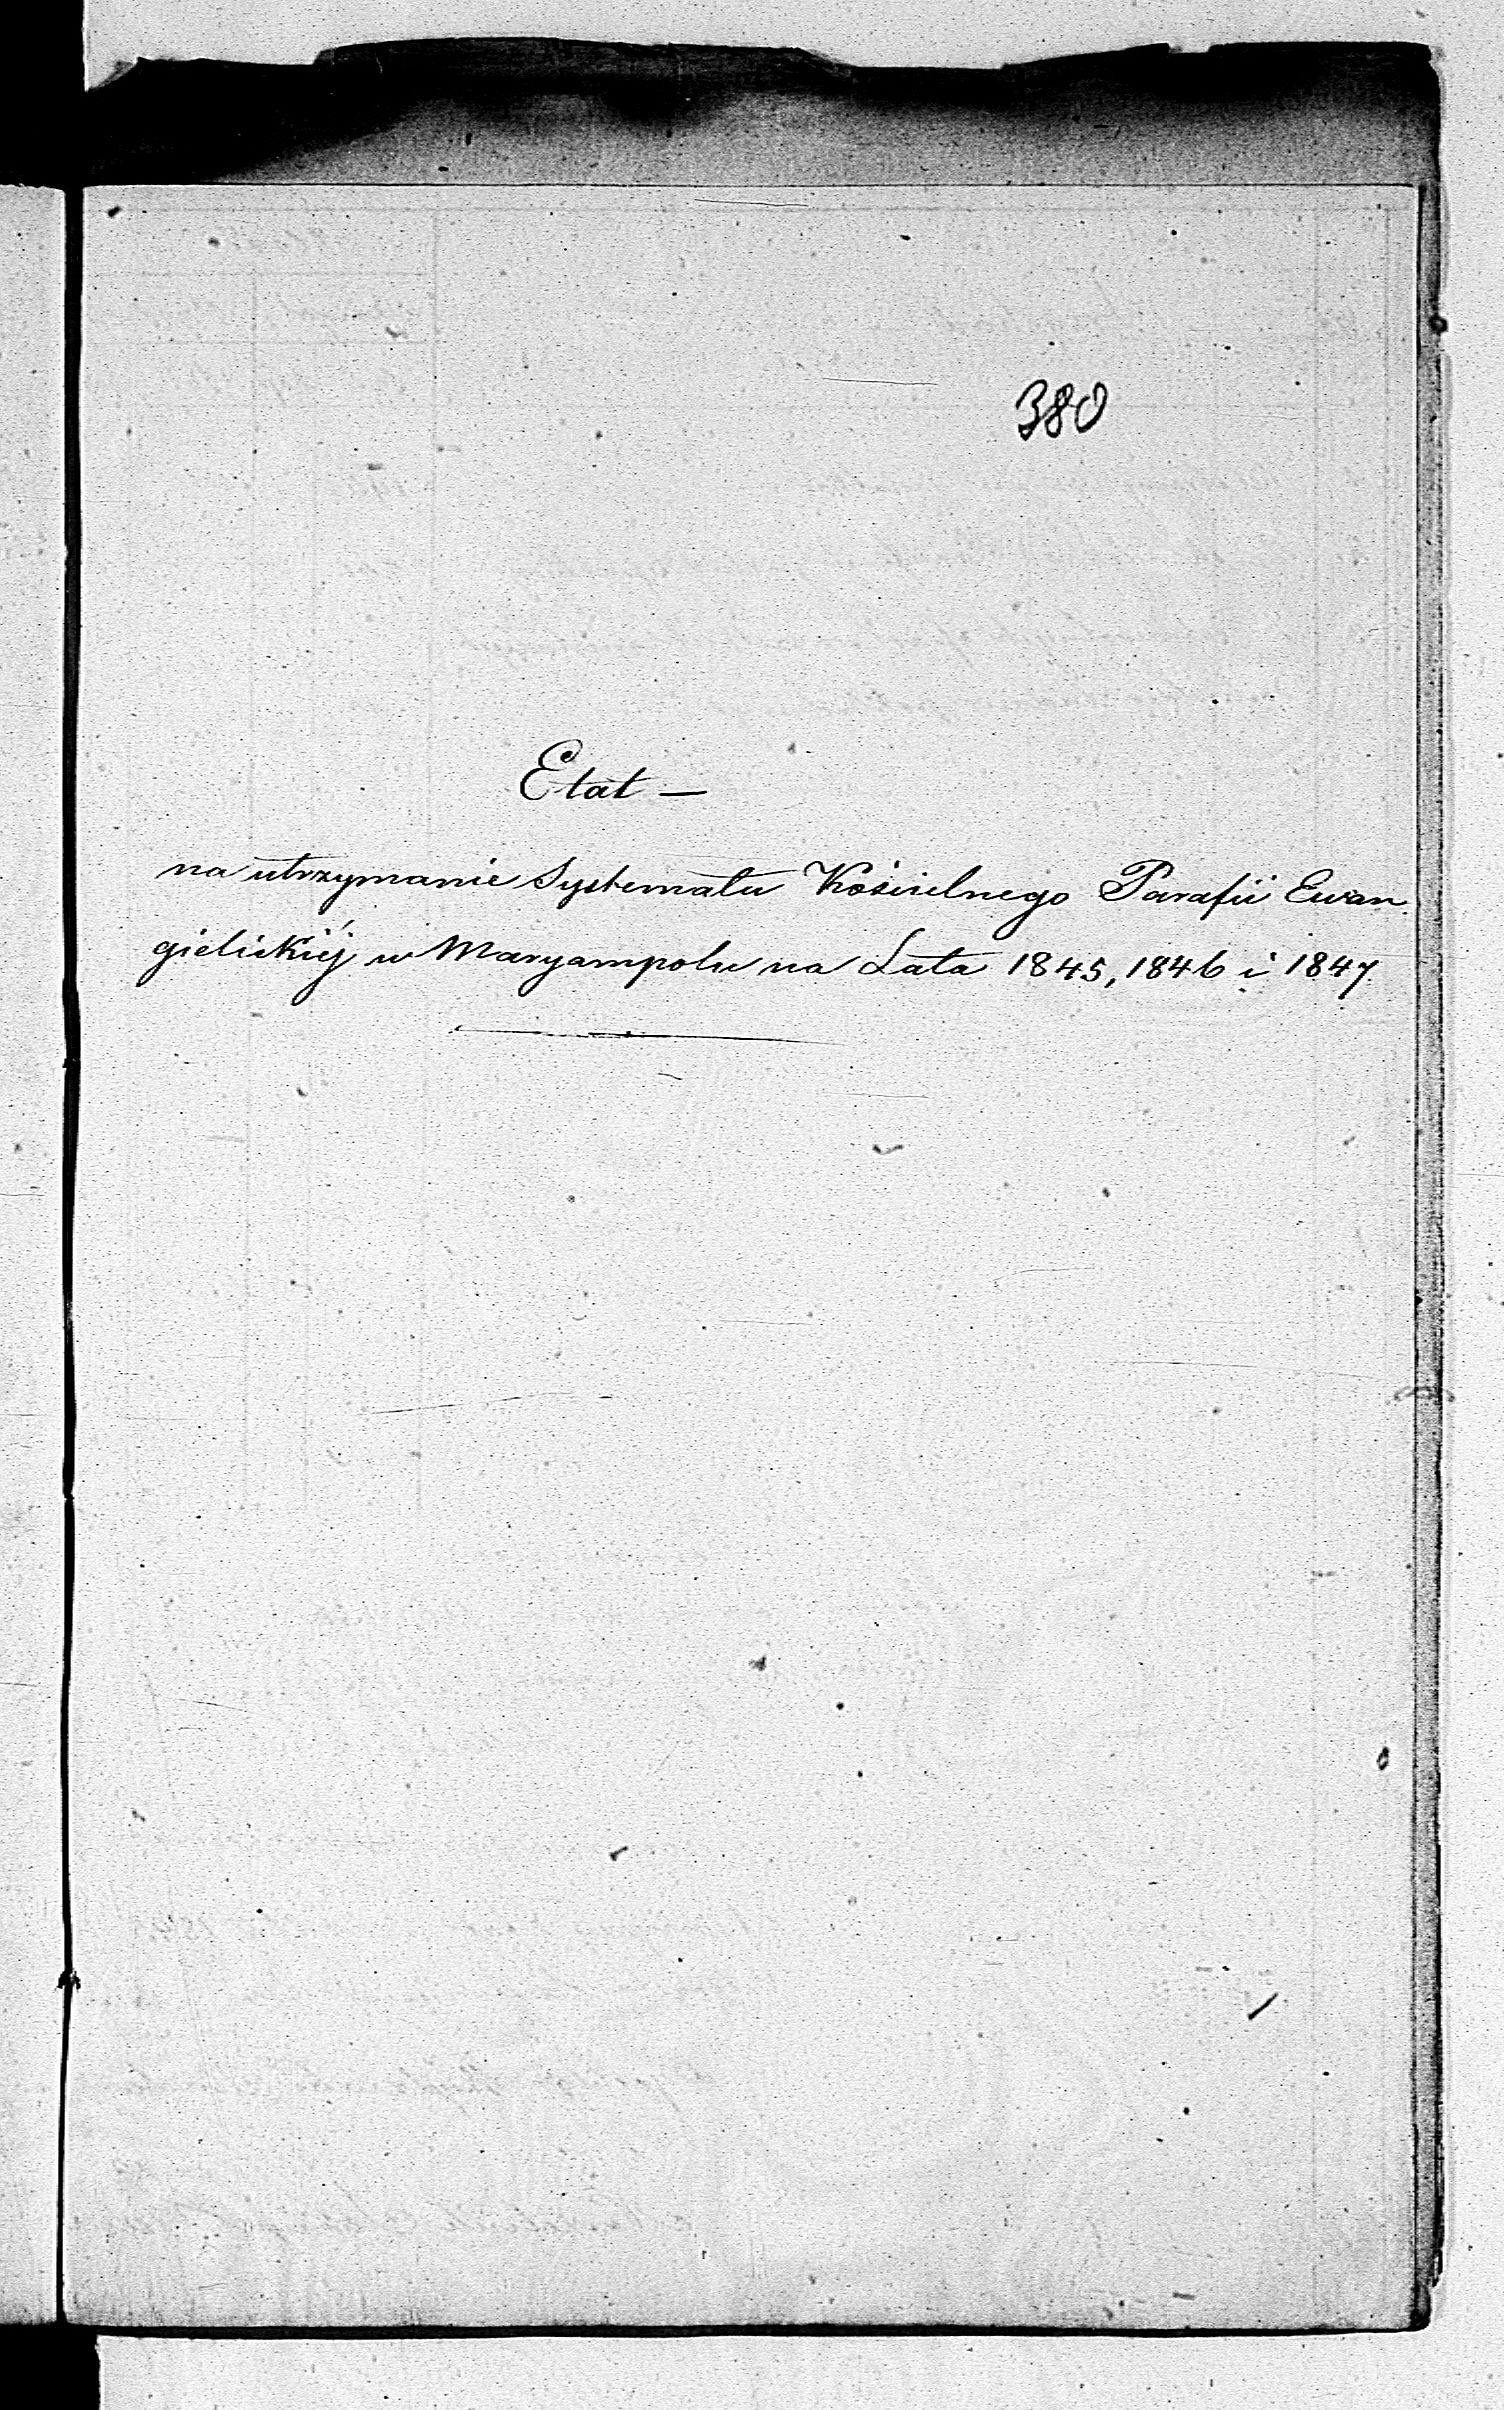 380
Etat —
na utrzymanie Systematu Kościelnego Parafii Ewan
gielickiéj w Maryampolu na Lata 1845, 1846 i 1847